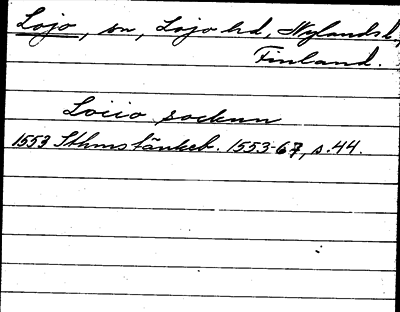 Lojo, sn, Lojo hd, Nylands l,
Finland.
Loiio socknn
1553 Sthms tänkeb. 1553-67, s. 44.